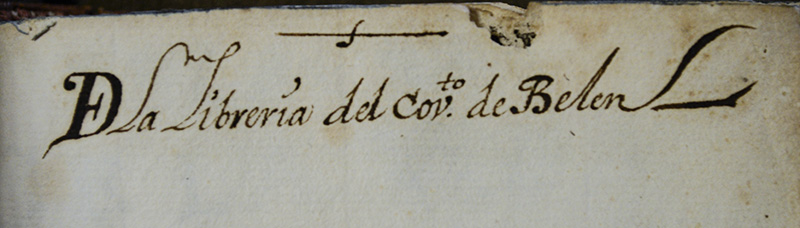 De la Librería del Cov.to de Belen